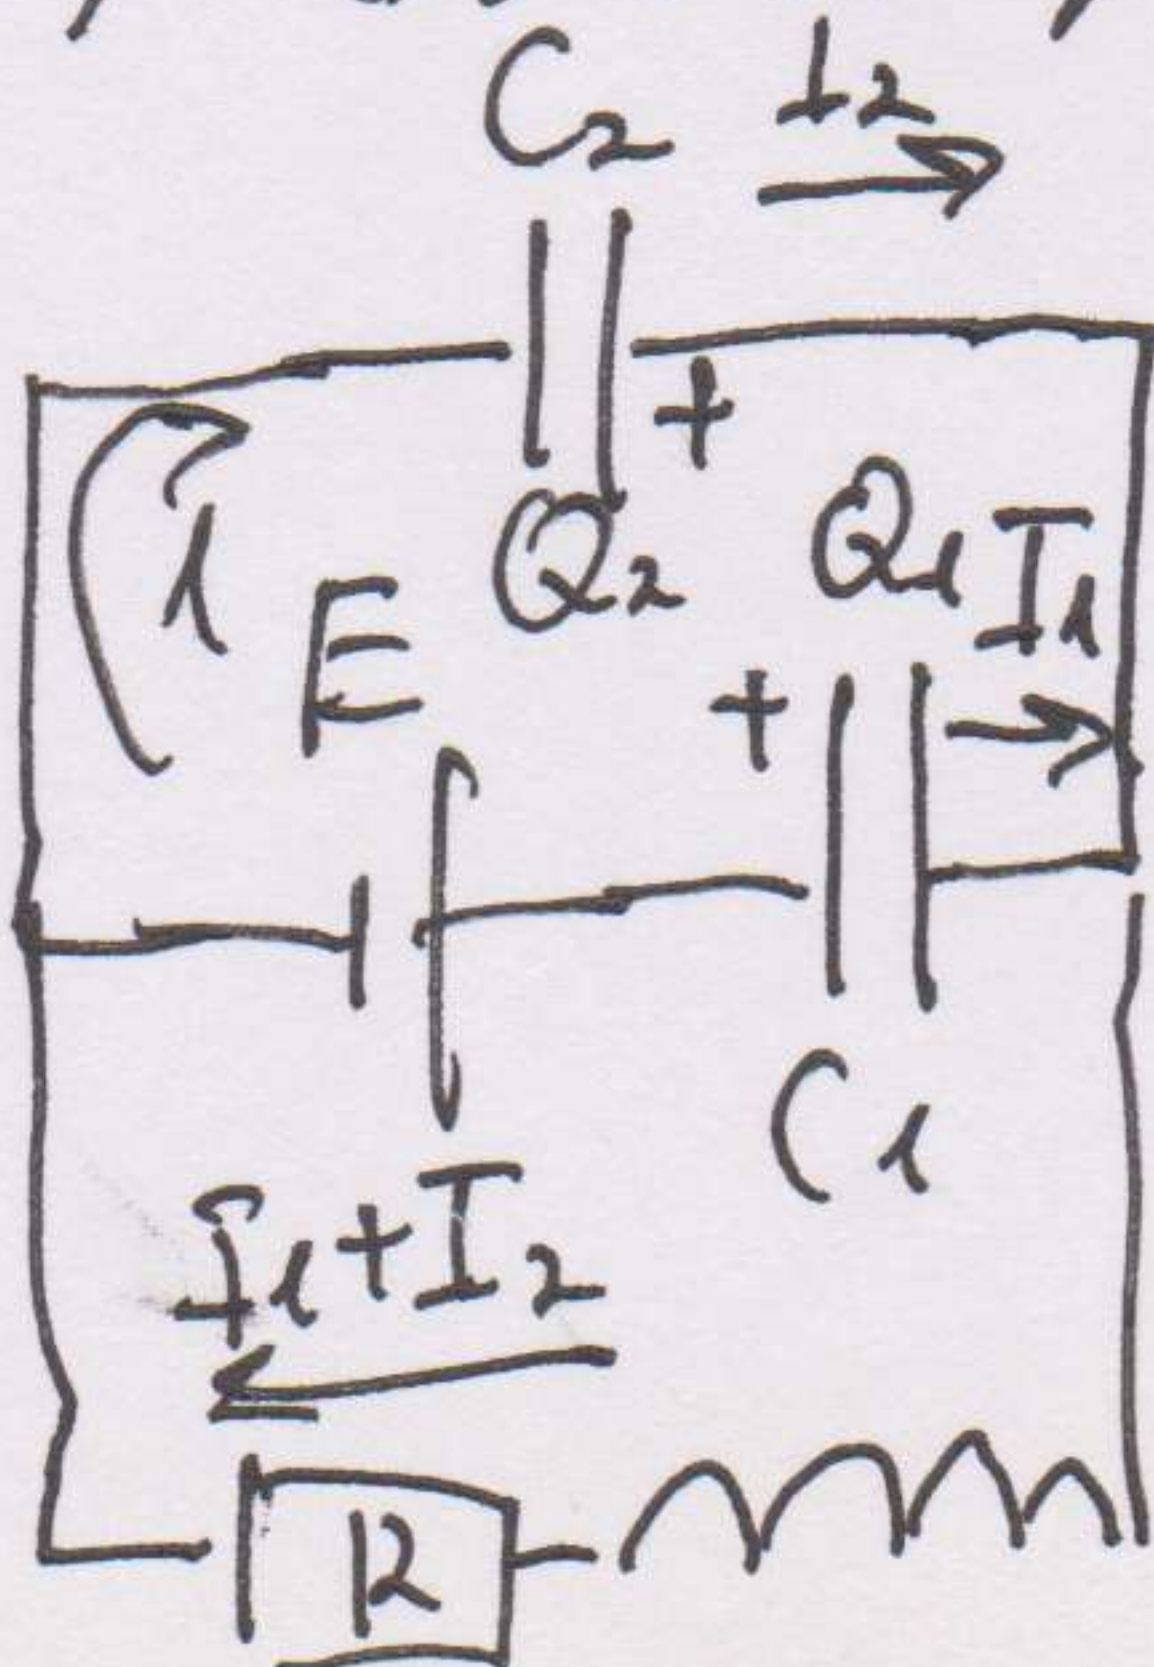 C2 I2
+
1 E Q2 Q1 I1
+
C1
I1+I2
R